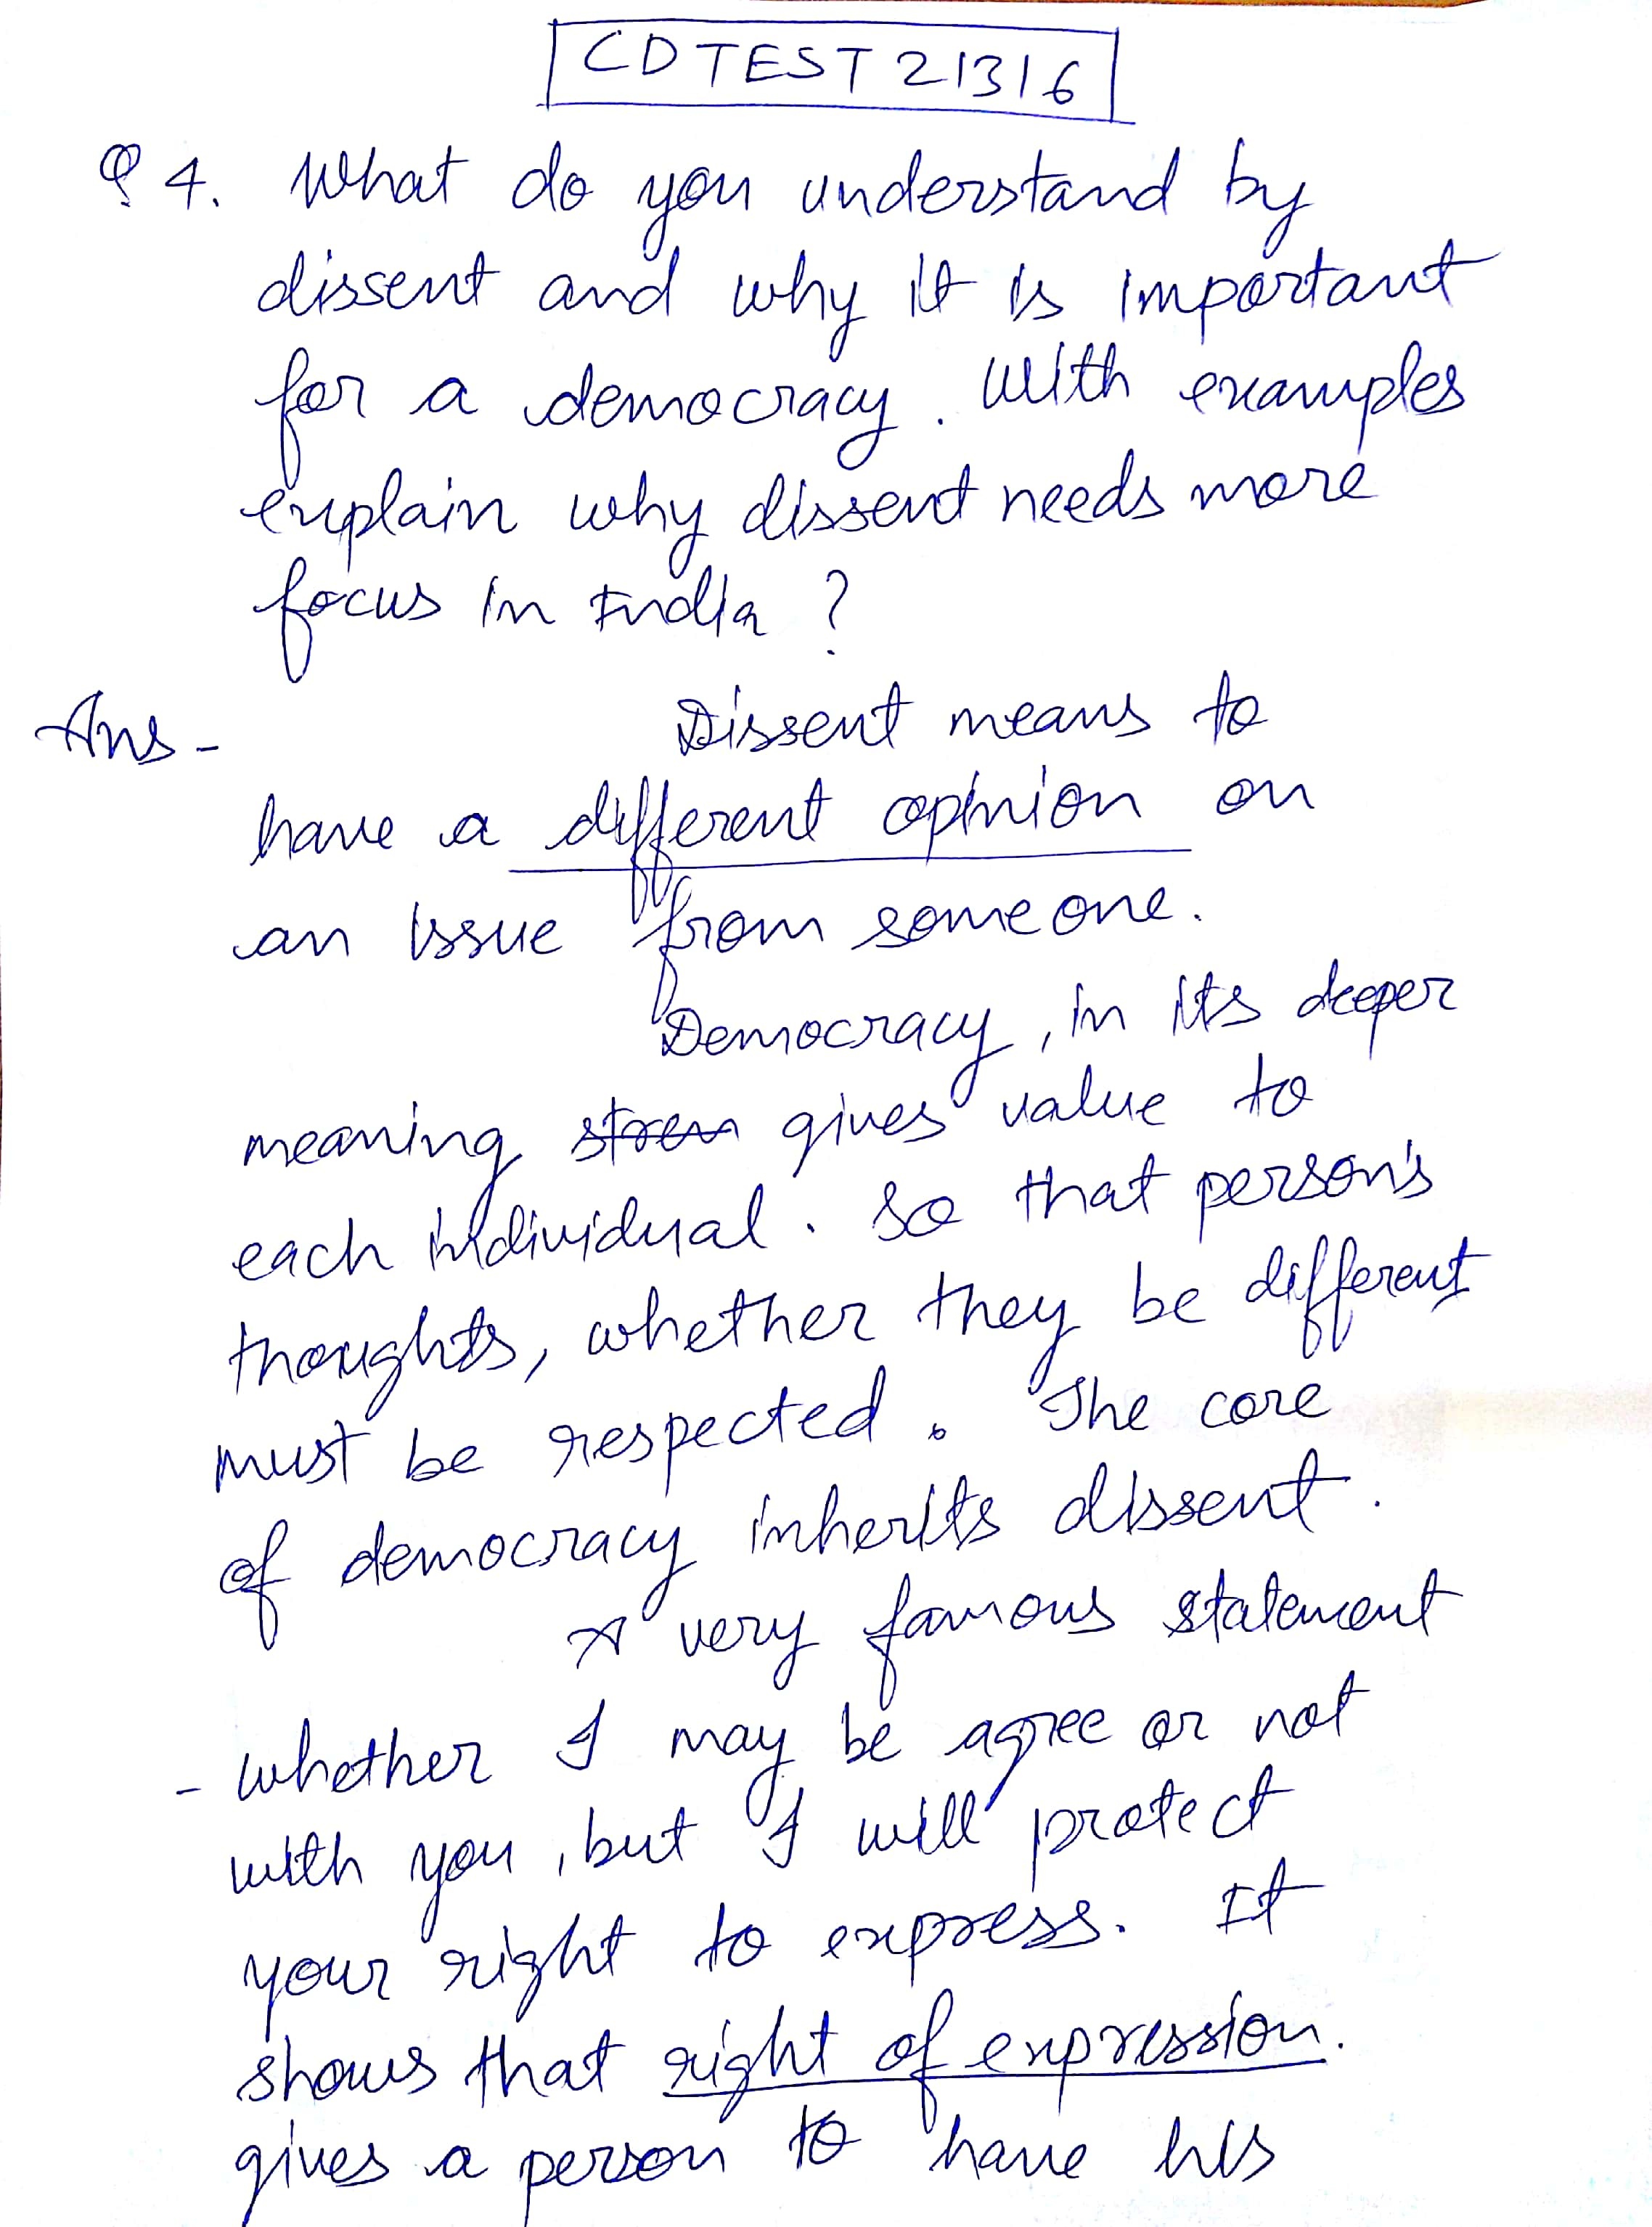 CD TEST 21316
Q 4. What do you understand by
dissent and why it is important
for a democracy. With examples
explain why dissent needs more
focus in India ?
Ans - Dissent means to
have a different opinion on
an issue from someone.
Democracy, in its deeper
meaning gives value to
each individual. So that person's
thoughts, whether they be different
must be respected. The core
of democracy inherits dissent.
A very famous statement
- whether I may be agree or not
with you, but I will protect
your right to express. It
shows that right of expression.
gives a person to have his